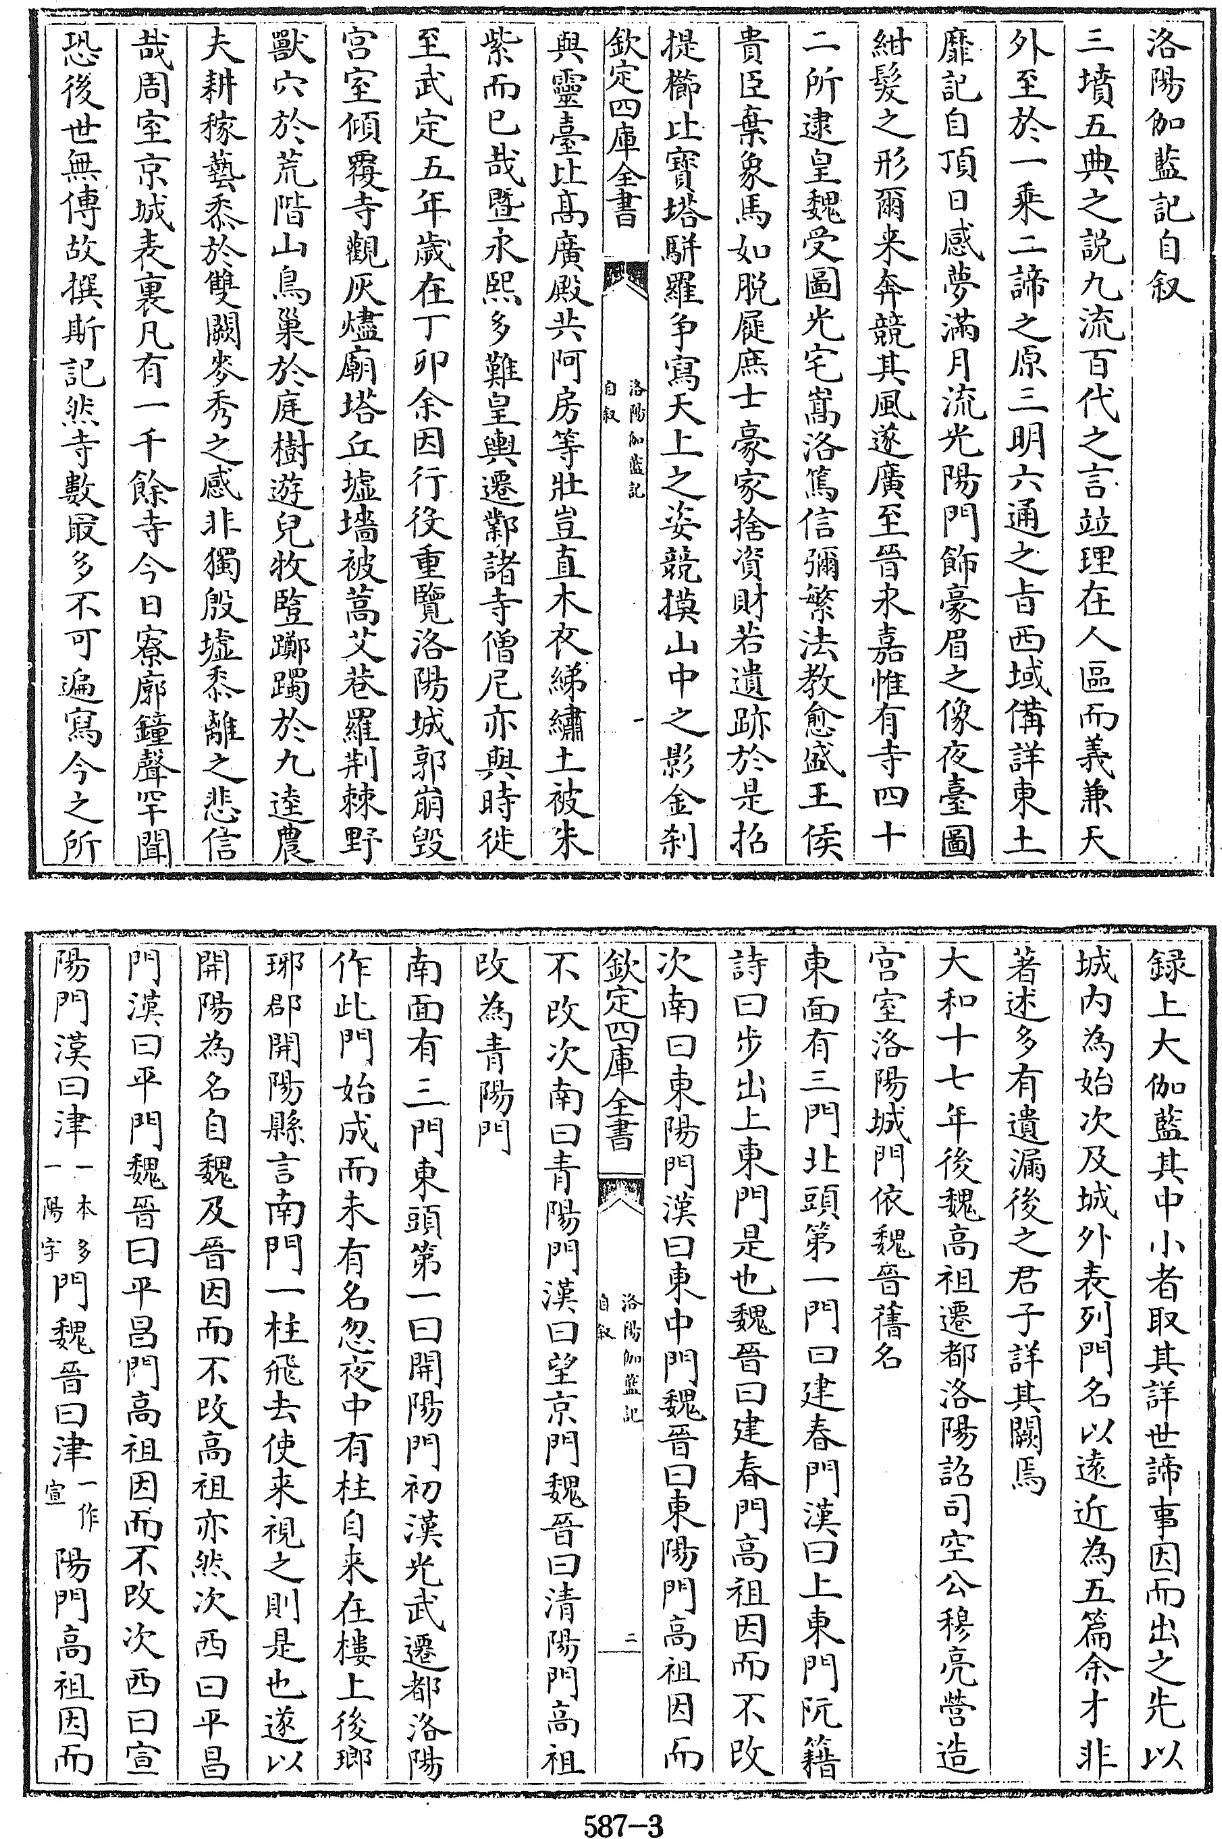 洛陽伽藍記自叙
三墳五典之説九流百代之言竝理在人區而義兼天
外至於一乘二諦之原三明六通之旨西域備詳東土
靡記自頂日感夢滿月流光陽門飾豪眉之像夜臺圖
紺髮之形爾来奔競其風遂廣至晉永嘉惟有寺四十
二所逮皇魏受圖光宅嵩洛篤信彌繁法教愈盛王侯
貴臣棄象馬如脱屣庶士豪家捨資財若遺跡於是招
提櫛比寶塔駢羅争寫天上之姿競摸山中之影金刹
欽定四庫全書
洛陽伽藍記
自叙
一
與靈臺比髙廣殿共阿房等壯豈直木衣綈繡土被朱
紫而已哉暨永熙多難皇輿遷鄴諸寺僧尼亦與時徙
至武定五年歲在丁卯余因行役重覽洛陽城郭崩毀
宫室傾覆寺觀灰燼廟塔丘墟墻被蒿艾巷羅荆棘野
獸穴於荒階山鳥巢於庭樹遊兒牧豎躑躅於九逵農
夫耕稼藝黍於雙闕麥秀之感非獨殷墟黍離之悲信
哉周室京城表裏凡有一千餘寺今日寮廓鐘聲罕聞
恐後世無傳故撰斯記然寺數最多不可遍寫今之所
録上大伽藍其中小者取其詳世諦事因而出之先以
城内為始次及城外表列門名以逺近為五篇余才非
著述多有遺漏後之君子詳其闕焉
大和十七年後魏高祖遷都洛陽詔司空公穆亮營造
宫室洛陽城門依魏晉舊名
東面有三門北頭第一門曰建春門漢曰上東門阮籍
詩曰步出上東門是也魏晉曰建春門高祖因而不改
次南曰東陽門漢曰東中門魏晉曰東陽門高祖因而
欽定四庫全書
洛陽伽藍記
自叙
二
不改次南曰青陽門漢曰望京門魏晉曰清陽門高祖
改為青陽門
南面有三門東頭第一曰開陽門初漢光武遷都洛陽
作此門始成而未有名忽夜中有柱自来在樓上後瑯
琊郡開陽縣言南門一柱飛去使来視之則是也遂以
開陽為名自魏及晉因而不改高祖亦然次西曰平昌
門漢曰平門魏晉曰平昌門高祖因而不改次西曰宣
陽門漢曰津一本多一陽字門魏晉曰津一作宣陽門高祖因而
587-3